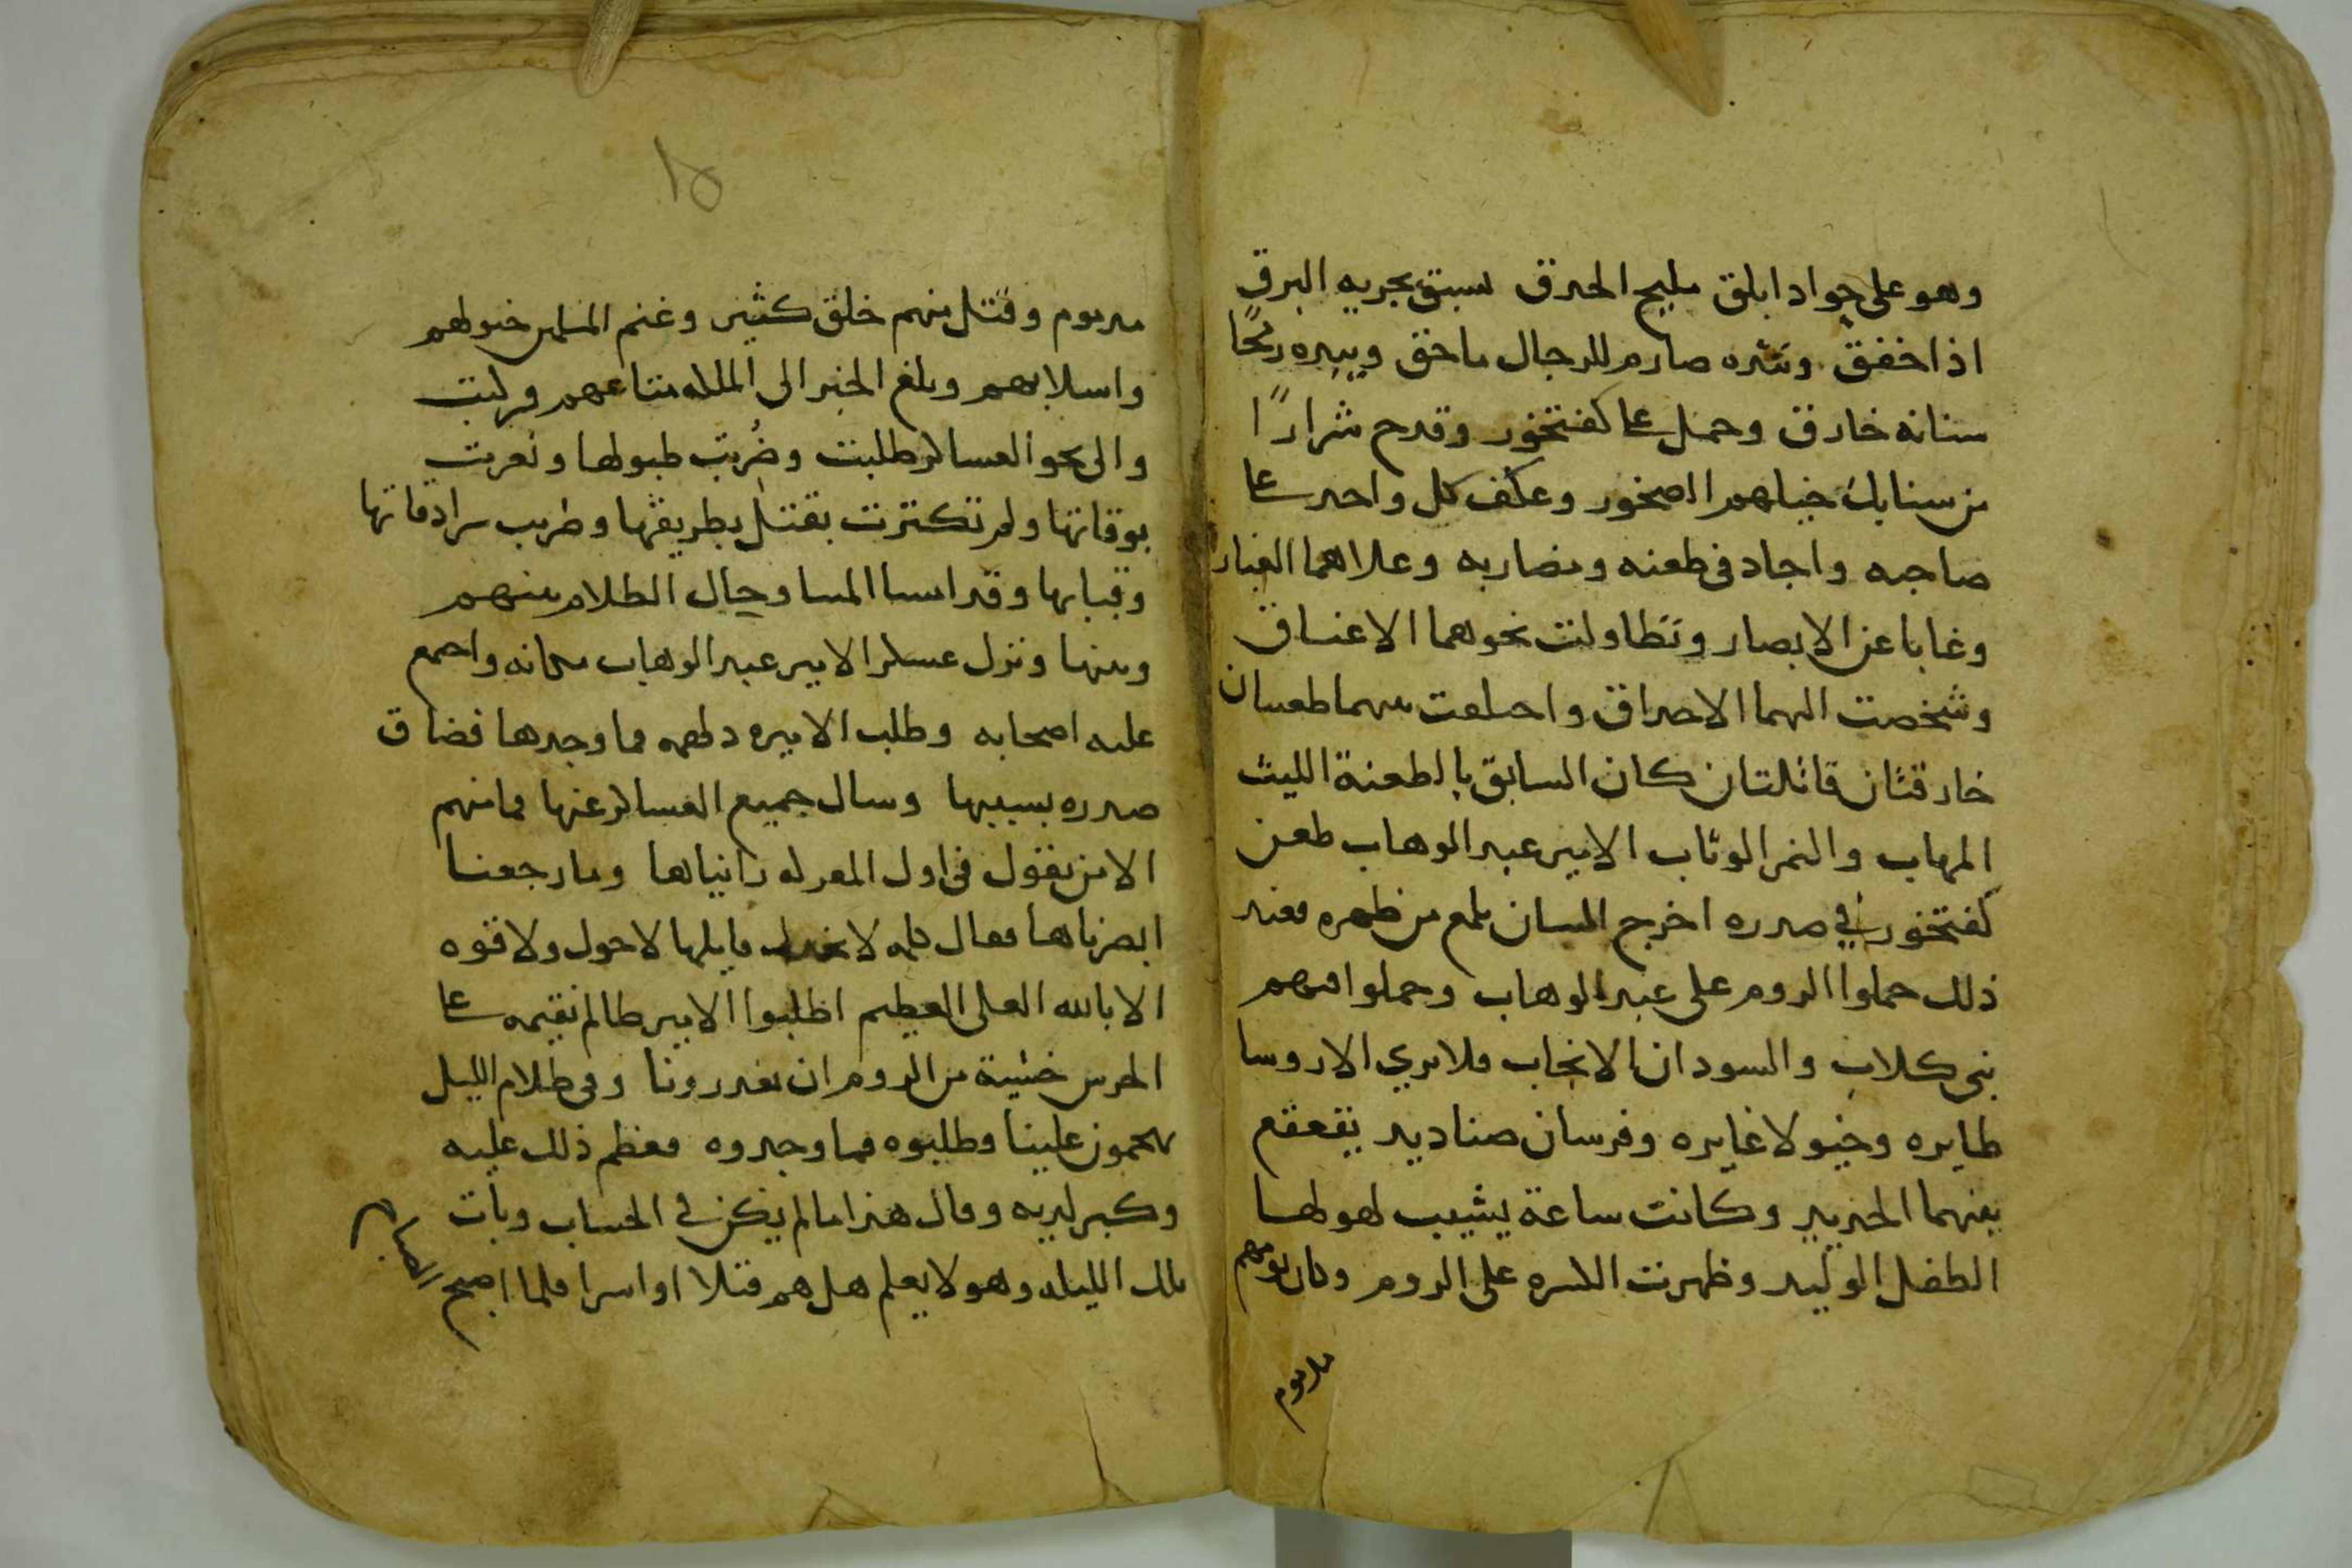 وهو على جواد ابلق مليح الحدق يسبق بجريه البرق
اذا خفق وبيده صارم للرجال ماحق وبيده رمحًا
سنانه خارق وحمل على كفتخور وقدح شرارًا
من سنابك خيلهم الصخور وعكف كل واحد على
صاحبه واجاد في طعنه ومضاربه وعلاهما الغبار
وغابا عن الابصار وتطاولت نحوهما الاعناق
وشخصت اليهما الاحداق واختلفت بينهما طعنتان
خارقتان قاتلتان كان السابق بالطعنة الليث
المهاب والنمر الوثاب الامير عبد الوهاب طعن
كفتخور في صدره اخرج السنان يلمع من ظهره فعند
ذلك حملوا الروم على عبد الوهاب وحملوا فيهم
بني كلاب والسودان الانجاب فلا تري الا روسا
طايره وخيولا غايره وفرسان صناديد يقعقع
بينهما الحديد وكانت ساعة يشيب لهولها
الطفل الوليد وظهرت الكسره على الروم وكان يومهم
ملدموم
مدموم وقتل منهم خلق كثير وغنم المسلمين خيولهم
واسلابهم وبلغ الخبر الى الملك متاعهم فركبت
والى نحو العساكر طلبت وضُربت طبولها ونعرت
بوقاتها ولم تكترت بقتل بطريقها وضرب سرادقاتها
وقبابها وقد امسا المسا وحال الظلام بينهم
وبينها ونزل عسكر الامير عبد الوهاب مكانه واجتمع
عليه اصحابه وطلب الاميره دلهمه فما وجدها فضاق
صدره بسببها وسال جميع العساكر عنها فما منهم
الا من يقول في اول المعركه رانياها وما رجعنا
ابصرناها فقال كلمه لا يخجل قايلها لا حول ولا قوه
الا بالله العلى العظيم اطلبوا الامير ظالم نقيمه على
الحرس خشية من الروم ان يغدرونا وفي ظلام الليل
يهجمون علينا وطلبوه فما وجدوه فعظم ذلك عليه
وكبر لديه وقال هذا ما لم يكن في الحساب وبات
تلك الليله وهو لا يعلم هل هم قتلا او اسرا فلما اصبح الصباح